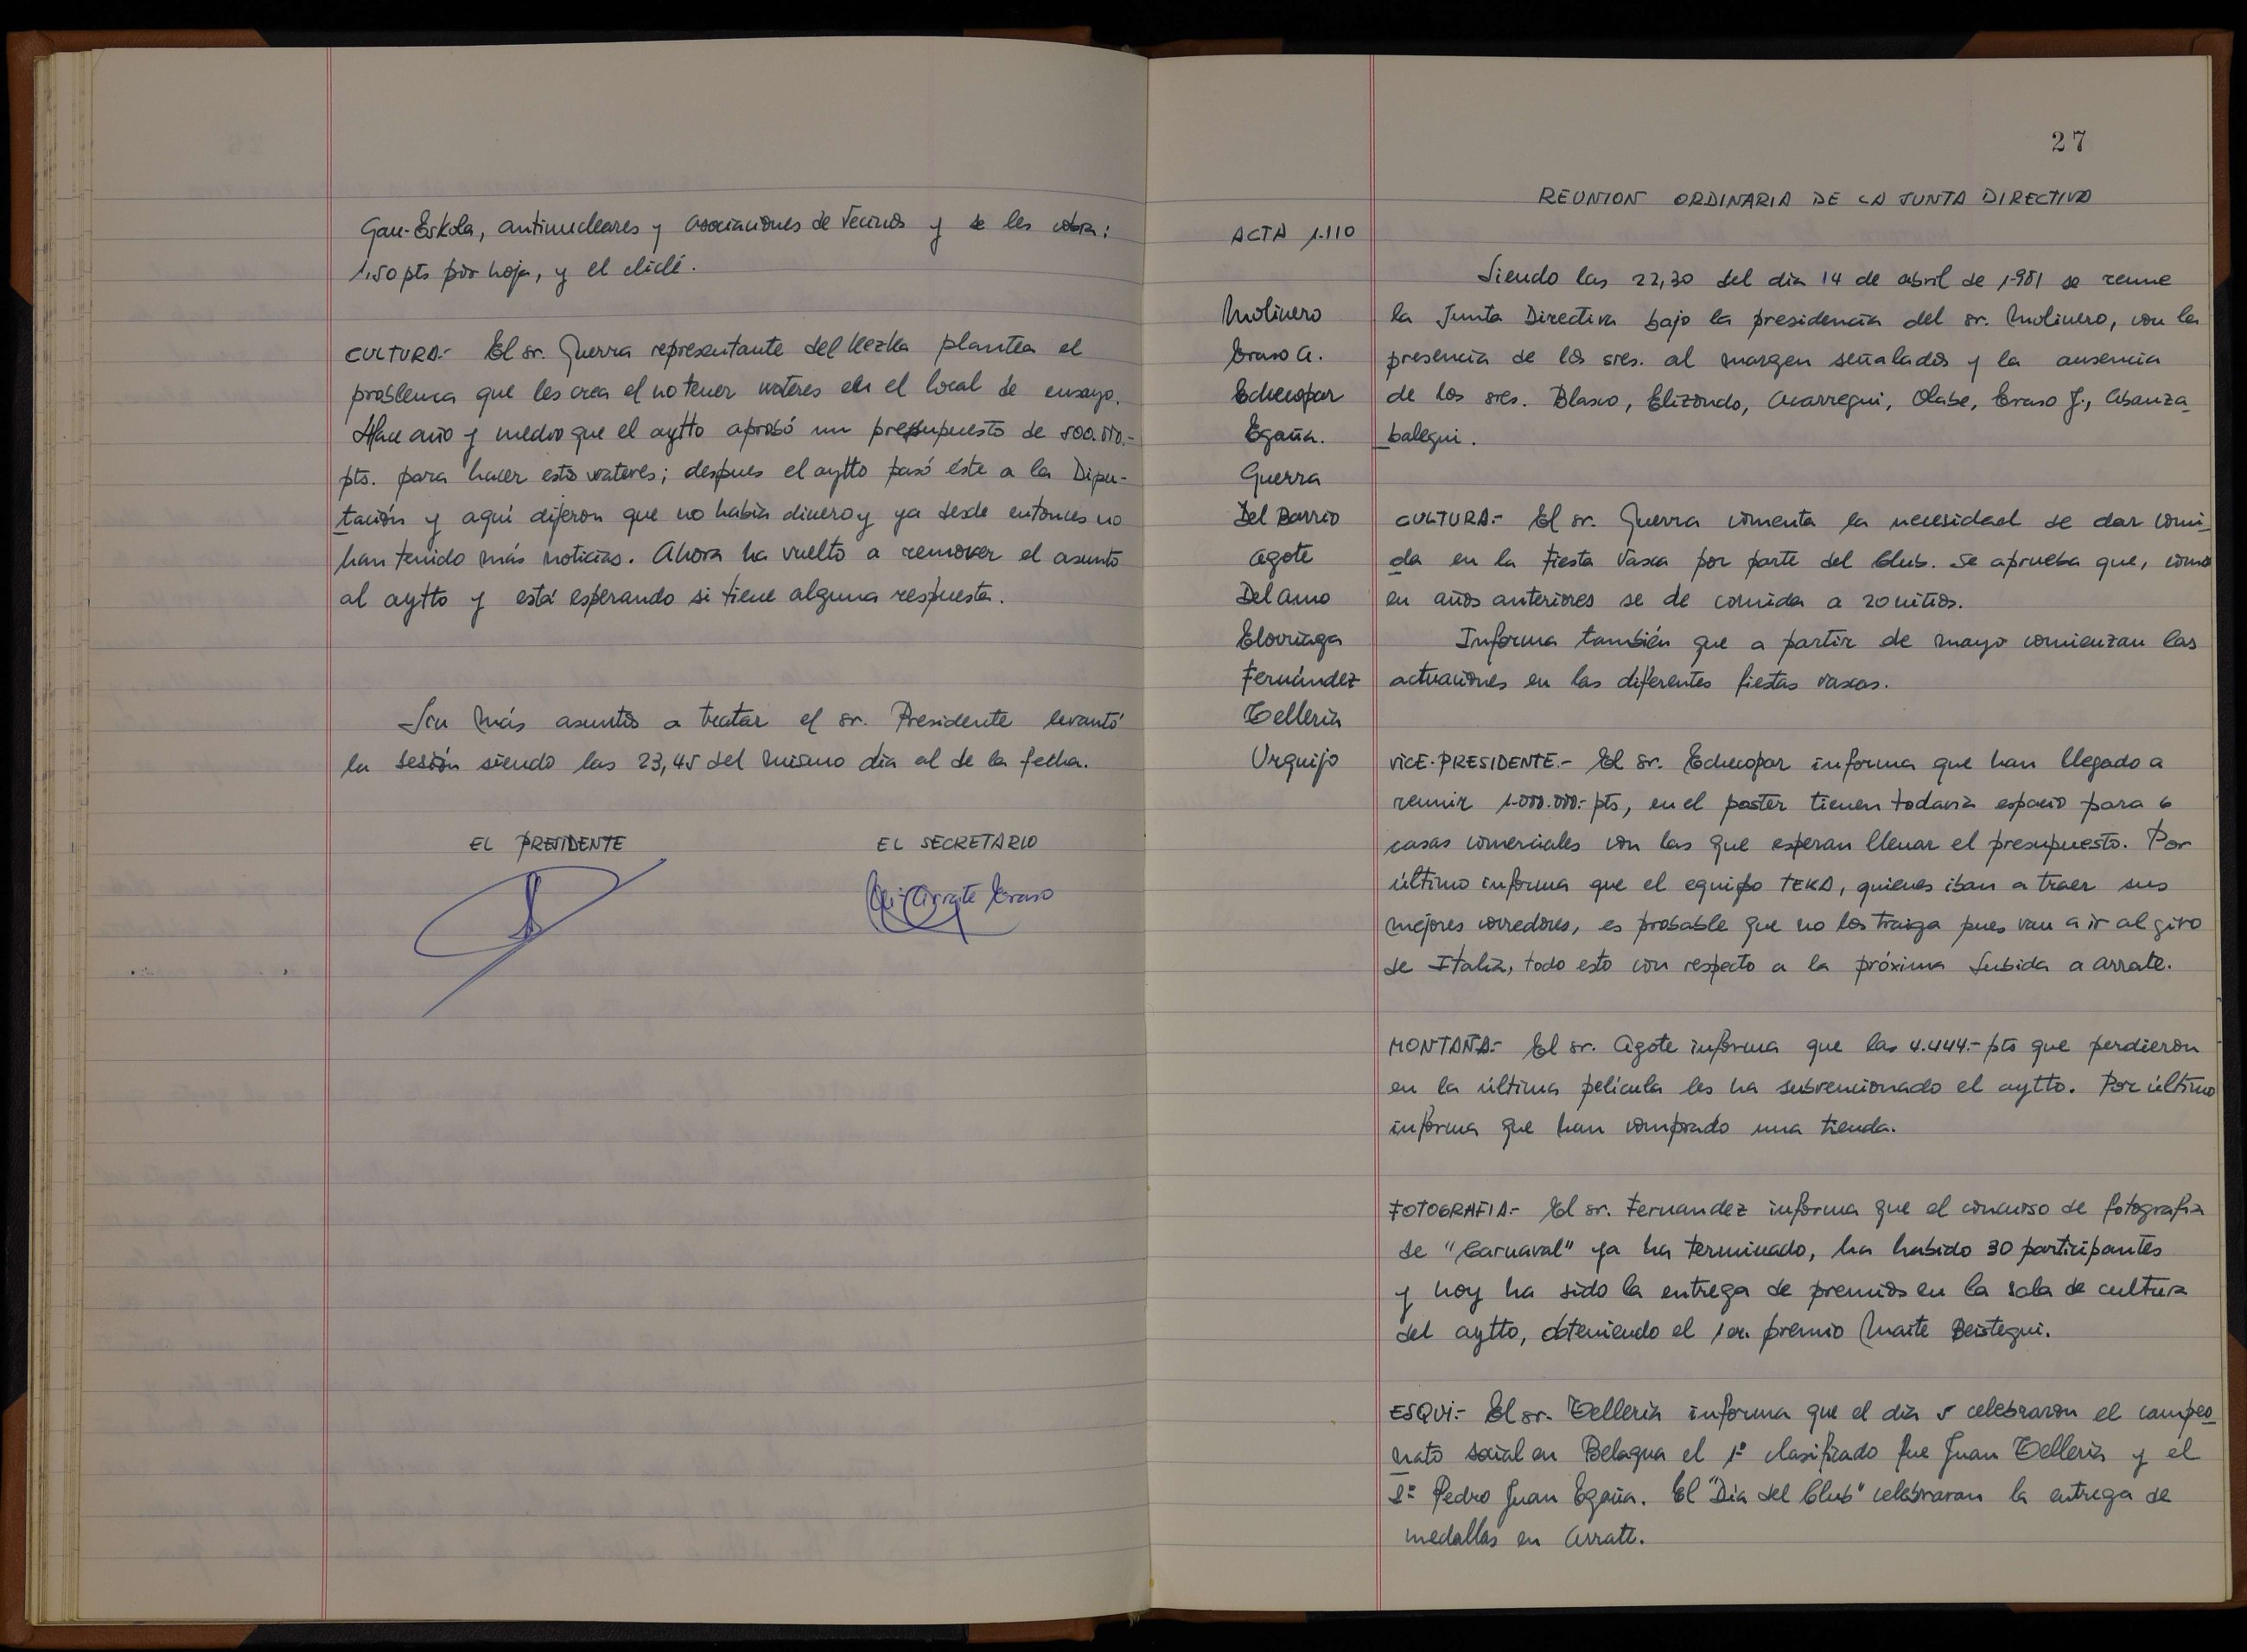 Gau-Eskola, antinucleares y asociaciones de Vecinos y se les cobra:
1,50 pts por hoja, y el cliclé.
CULTURA.- El sr. Guerra representante del Kezka plantea el
problema que les crea el no tener wateres en el local de ensayo.
Hace año y medio que el aytto aprobó un presupuesto de 500.000.-
pts. para hacer esto wateres; despues el aytto pasó éste a la Dipu-
tación y aquí dijeron que no había dinero y ya desde entonces no
han tenido más noticias. Ahora ha vuelto a remover el asunto
al aytto y está esperando si tiene alguna respuesta.
Sin más asuntos a tratar el sr. Presidente levantó
la sesión siendo las 23,45 del mismo dia al de la fecha.
EL PRESIDENTE EL SECRETARIO
Arrate Eraso
27
REUNION ORDINARIA DE LA JUNTA DIRECTIVA
ACTA 1.110
Molinero
Eraso A.
Echecopar
Egaña.
Guerra
Del Barrio
Agote
Del Amo
Elorriaga
Fernández
Telleria
Urquijo
Siendo las 22,30 del dia 14 de abril de 1.981 se reune
la Junta Directiva bajo la presidencia del sr. Molinero, con la
presencia de los sres. al margen señalados y la ausencia
de los sres. Blasco, Elizondo, Acarregui, Olabe, Eraso J., Abanza-
balegui.
CULTURA.- El sr. Guerra comenta la necesidad de dar comi-
da en la Fiesta Vasca por parte del Club. Se aprueba que, como
en años anteriores se de comida a 20 niños.
Informa también que a partir de mayo comienzan las
actuaciones en las diferentes fiestas vascas.
VICE-PRESIDENTE.- El Sr. Echecopar informa que han llegado a
reunir 1.000.000.- pts, en el poster tienen todavía espacio para 6
casas comerciales con las que esperan llenar el presupuesto. Por
último informa que el equipo TEKA, quienes iban a traer sus
mejores corredores, es probable que no los traiga pues van a ir al giro
de Italia, todo esto con respecto a la próxima Subida a Arrate.
MONTAÑA.- El sr. Agote informa que las 4.444.- pts que perdieron
en la última película les ha subvencionado el aytto. Por último
informa que han comprado una tienda.
FOTOGRAFIA.- El sr. Fernandez informa que el concurso de fotografia
de "Carnaval" ya ha terminado, ha habido 30 participantes
y hoy ha sido la entrega de premios en la sala de cultura
del aytto, obteniendo el 1er. premio Maite Beistegui.
ESQUI.- El sr. Telleria informa que el día 5 celebraron el campeo-
nato social en Belagua el 1º clasificado fue Juan Telleria y el
2º Pedro Juan Egaña. El "Dia del Club" celebraran la entrega de
medallas en Arrate.